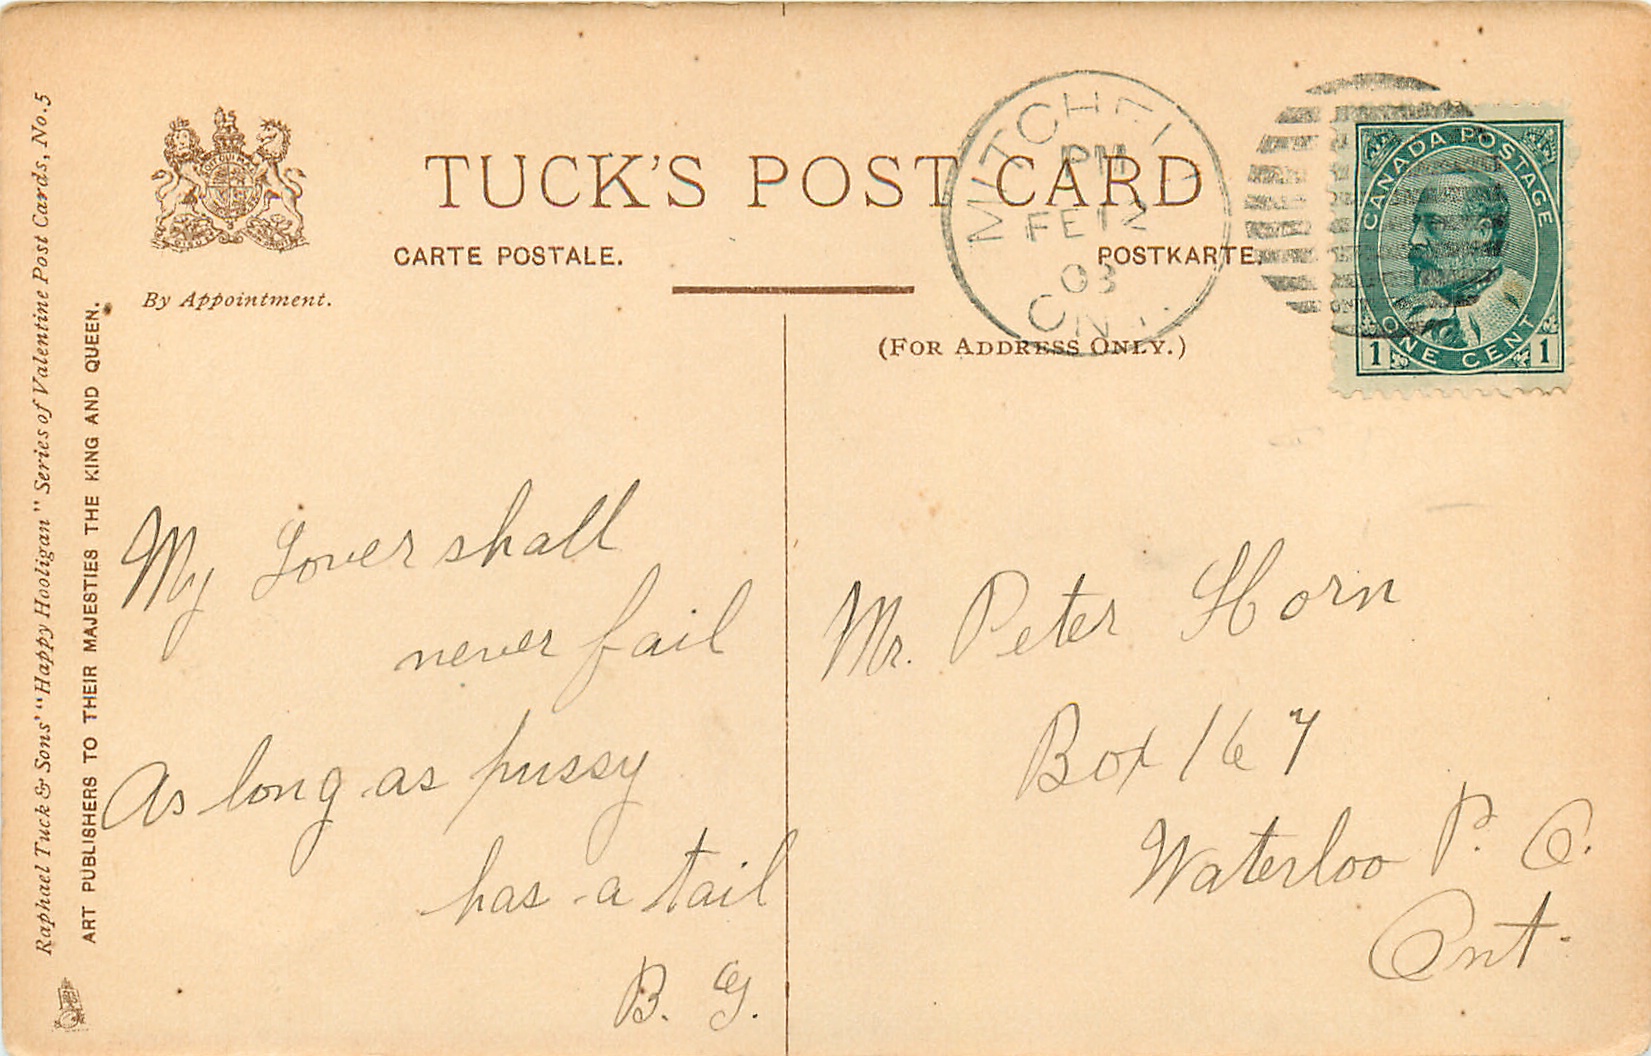 Raphael Tuck & Sons' "Happy Hooligan" Series of Valentine Post Cards, No. 5
ART PUBLISHERS TO THEIR MAJESTIES THE KING AND QUEEN.
By Appointment.
TUCK'S POST CARD
CARTE POSTALE.
POSTKARTE.
(FOR ADDRESS ONLY.)
MITCHELL
PM
FE 12
03
ONT.
CANADA POSTAGE
ONE CENT
1 1
My Lover shall
never fail
As long as pussy
has a tail
B. G.
Mr. Peter Horn
Box 167
Waterloo P. O.
Ont.